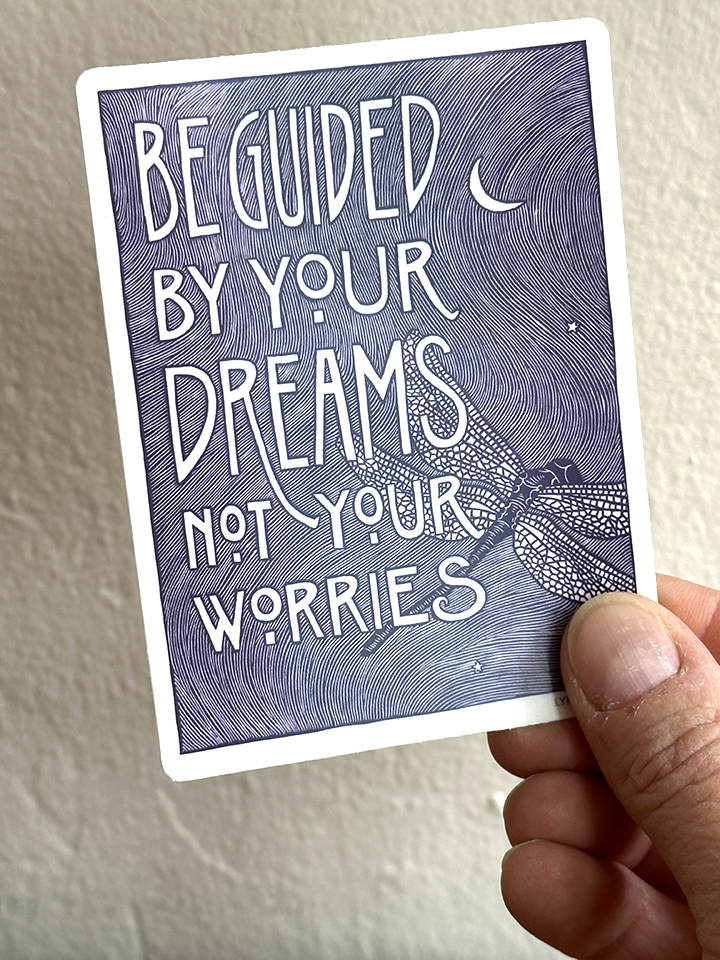 BE GUIDED
BY YOUR
DREAMS
NOT YOUR
WORRIES